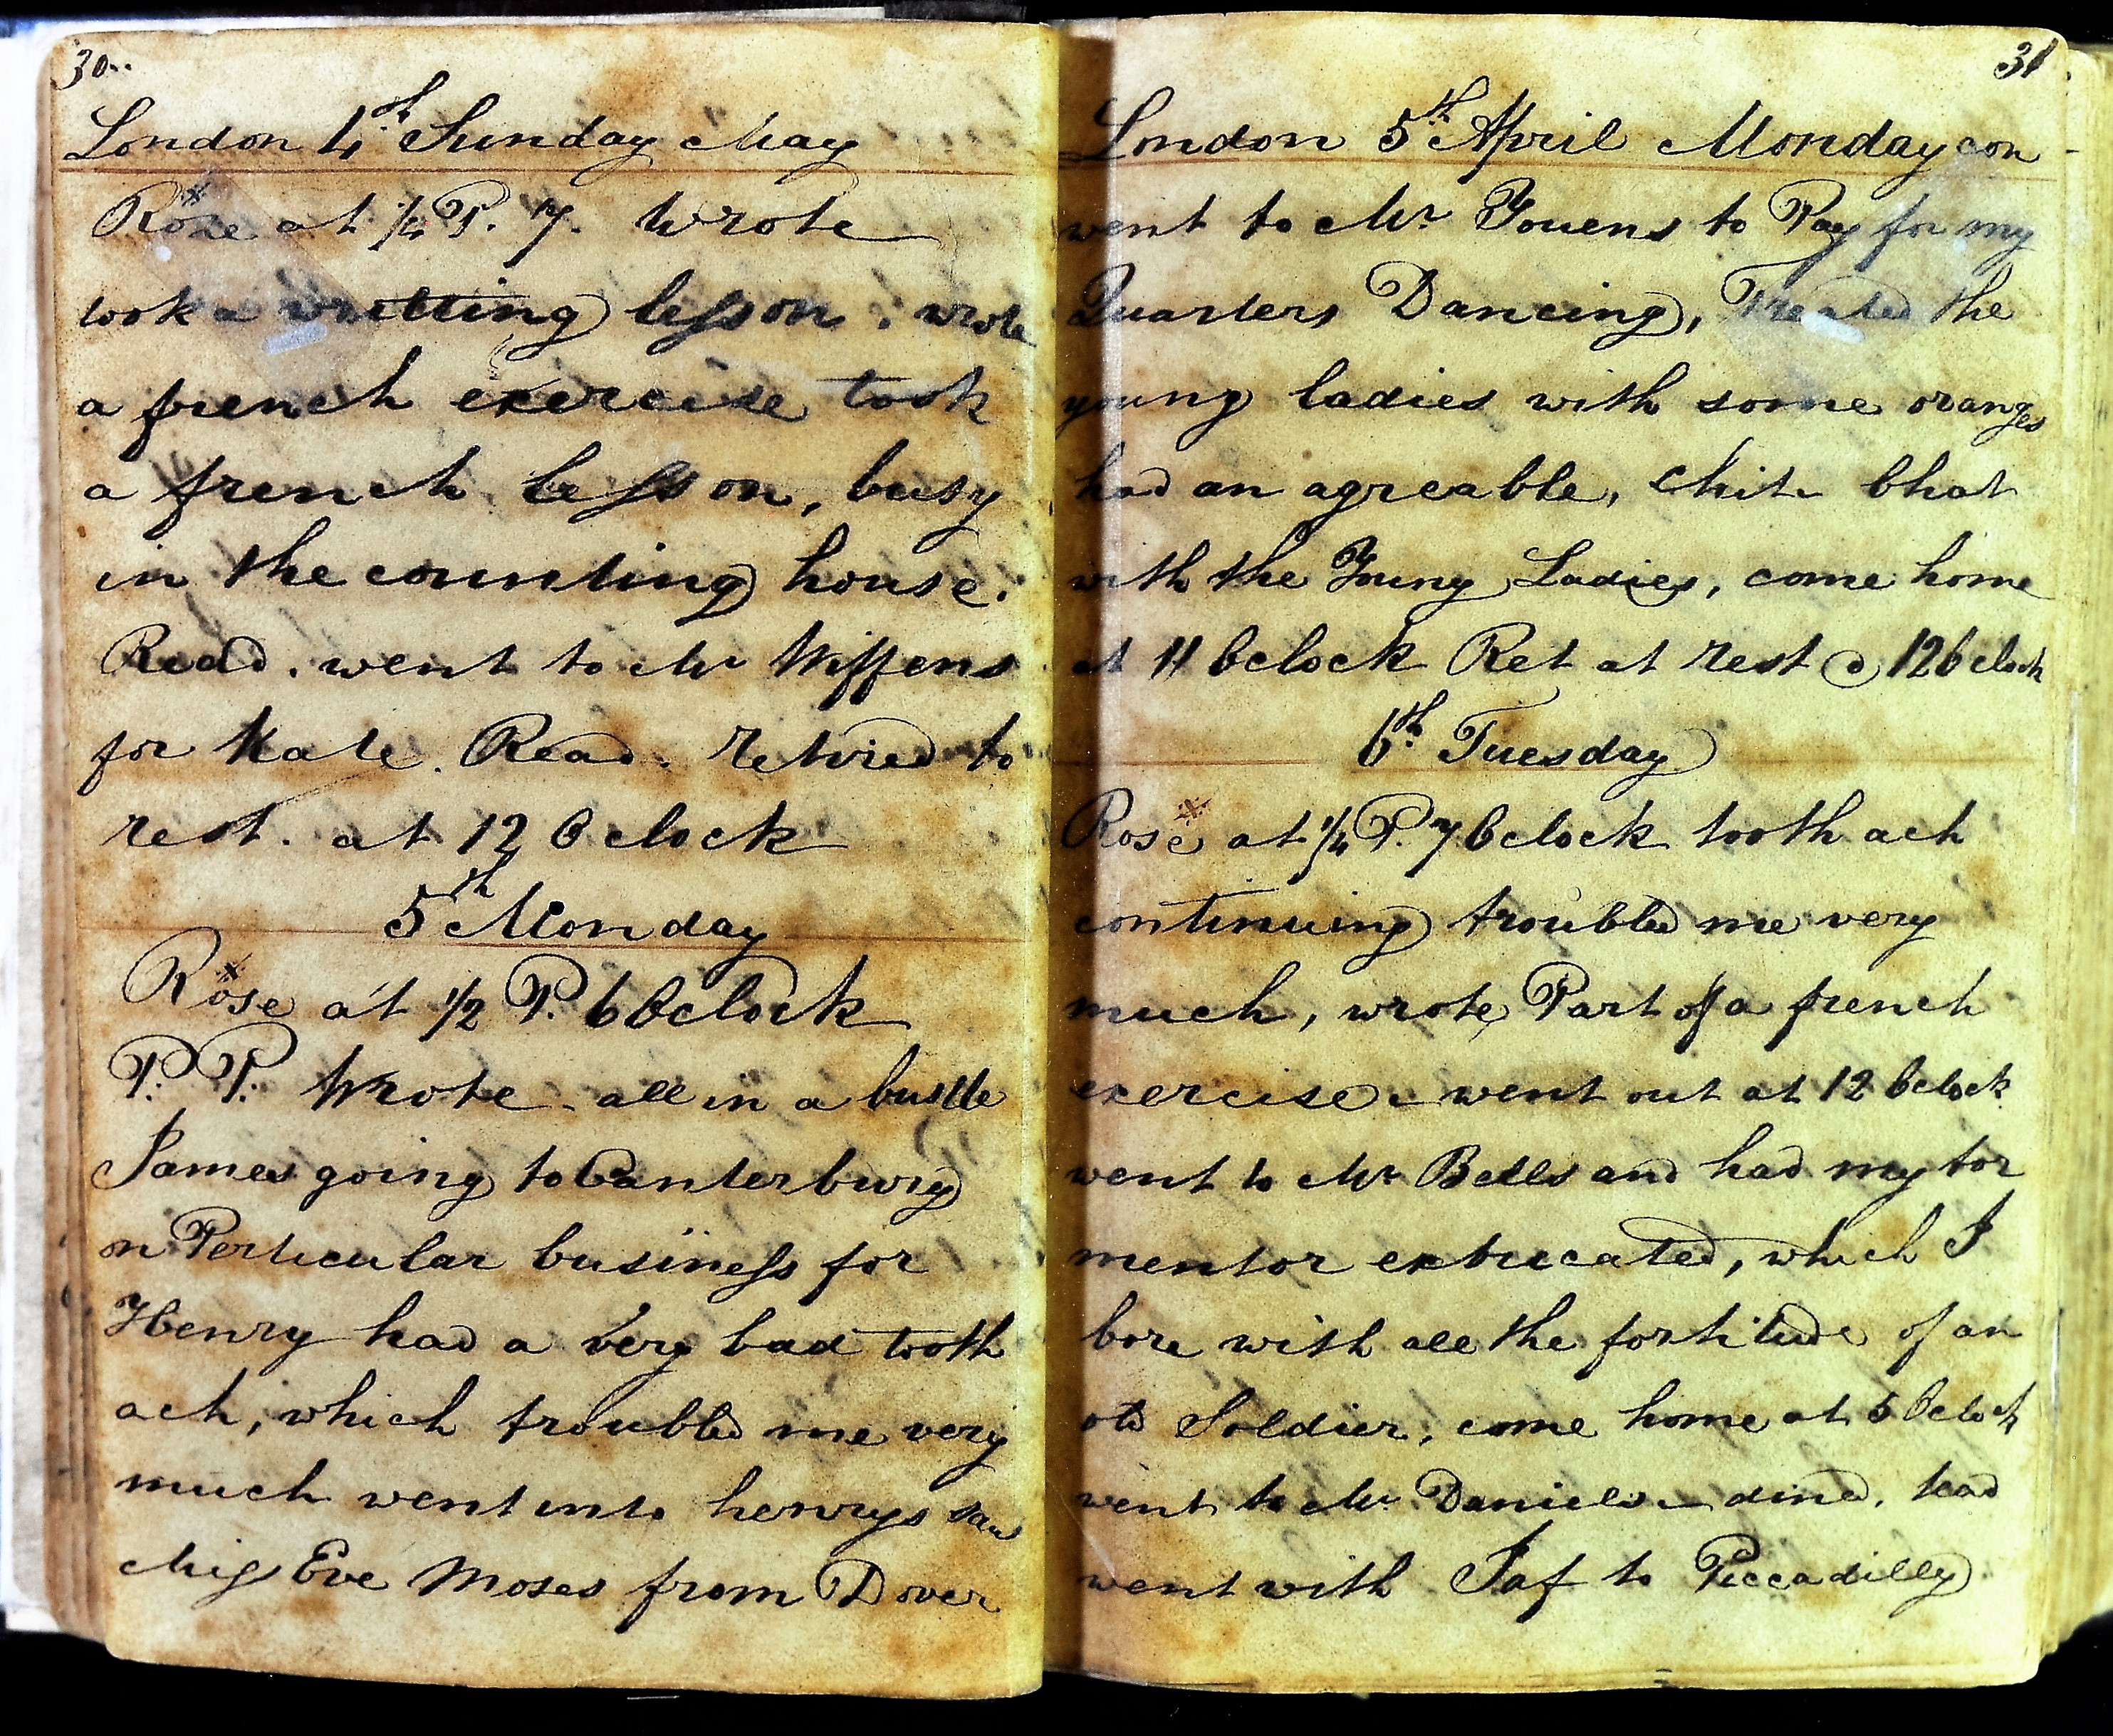 30..
London 4th Sunday May
Rose at 1/4 P. 7. Wrote
took a writting lesson. wrote
a french exercise took
a french lesson, busy
in the counting house.
Read. went to Mr Wiffens
for Kate. Read. retired to
rest. at 12 Oclock
5th Monday
Rose at 1/2 P. 6 Oclock
P. P. Wrote all in a bustle
James going to Canterburg
on Perticular business for
Henry had a very bad tooth
ach, which troubled me very
much went into henrys saw
Miss Eve Moses from Dover
31
London 5th April Monday con
went to Mr Youens to Pay for my
Quarters Dancing, Treated the
young ladies with some oranges
had an agreable, chit Chat
with the Young Ladies, come home
at 11 Oclock Ret at rest @ 12 Oclock
6th Tuesday
Rose at 1/4 P. 7 Oclock tooth ach
continuing troubled me very
much, wrote Part of a french
exercise. went out at 12 Oclock
went to Mr Bells and had my tor
mentor extrecated, which I
bore with all the fortitude of an
old Soldier, come home at 5 Oclock
went to Mr Daniels dined, tead
went with Jas to Piccadilly